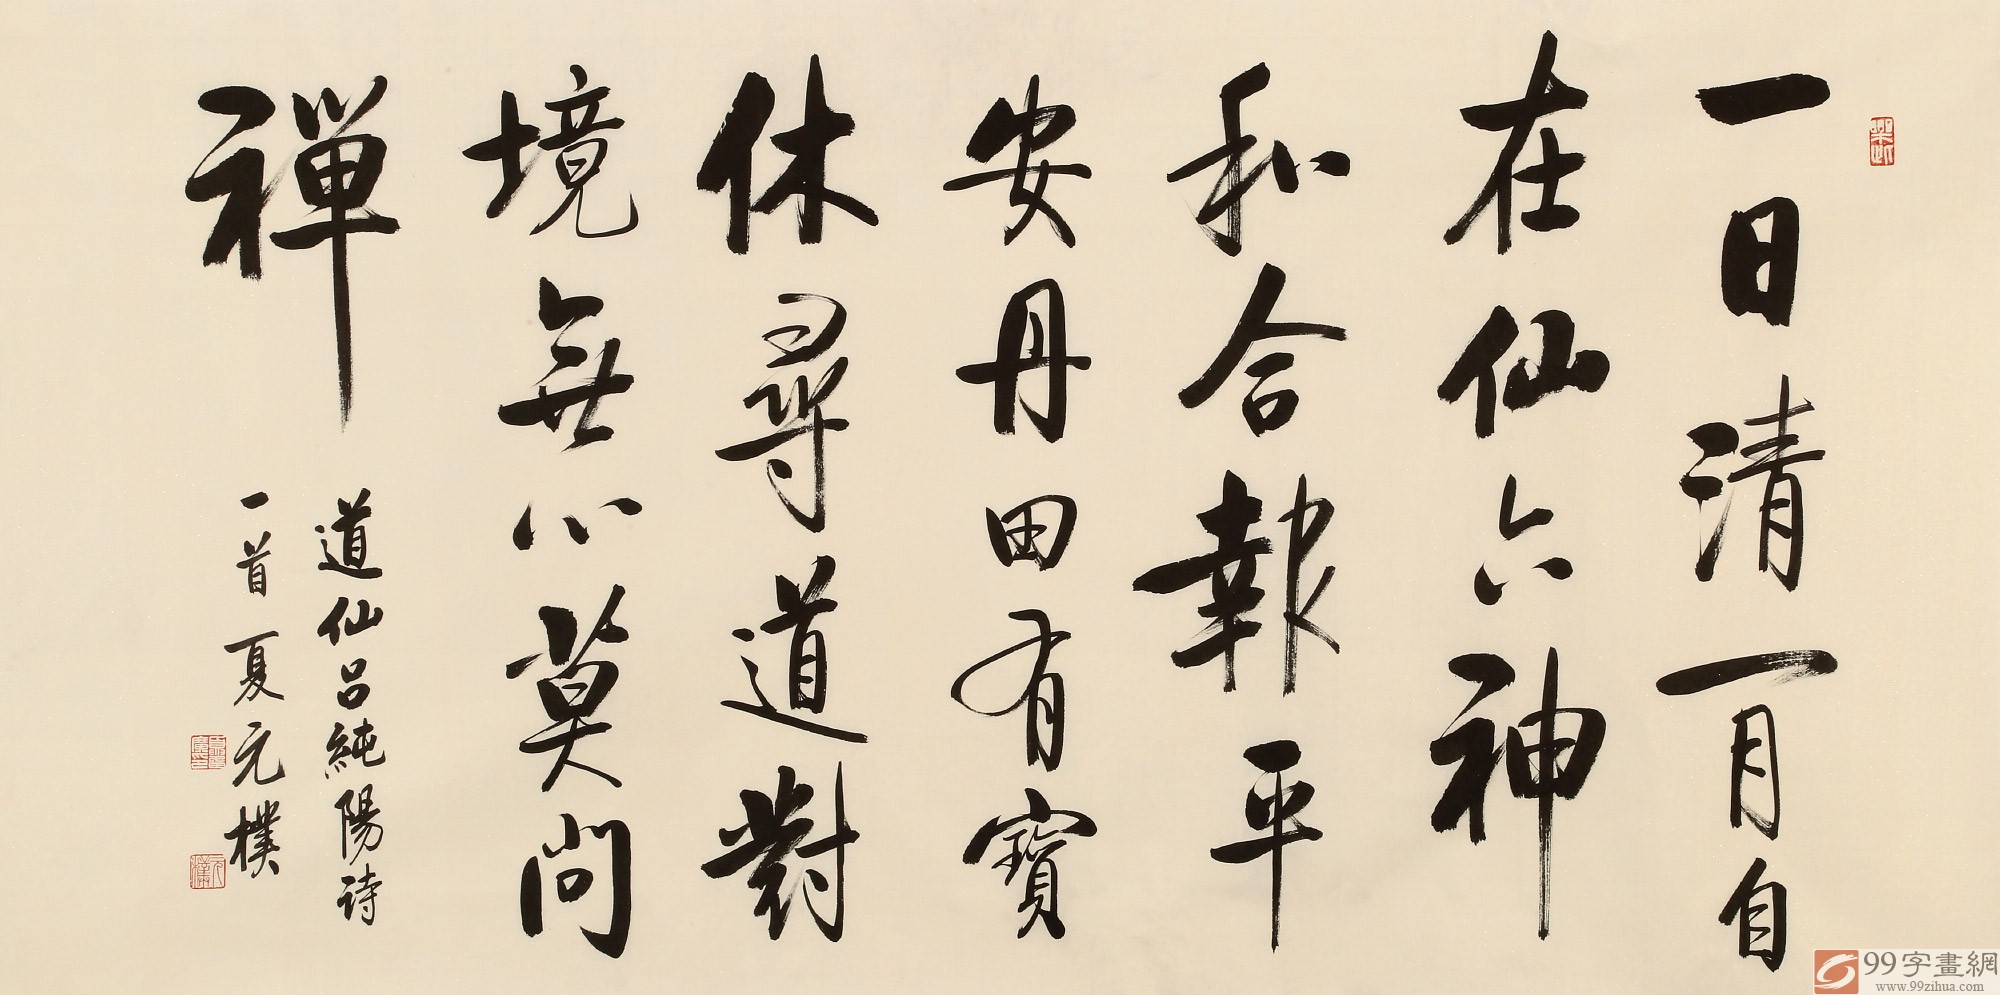 一日清閒自
在仙六神
和合報平
安丹田有寶
休尋道對
境無心莫問
禪
道仙呂純陽詩
一首夏元樸
99字畫網
www.99zihua.com